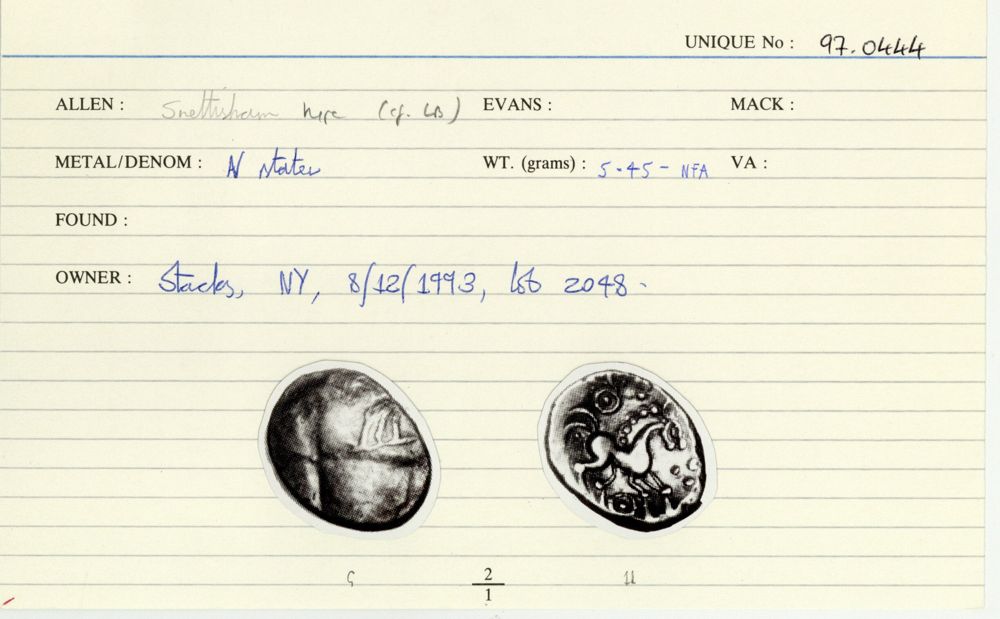 UNIQUE No : 97.0444
ALLEN : Snettisham type (cf. LB) EVANS : MACK :
METAL/DENOM : N stater WT. (grams) : 5.45 - NFA VA :
FOUND :
OWNER : Stacks, NY, 8/12/1993, lot 2048.
2
1